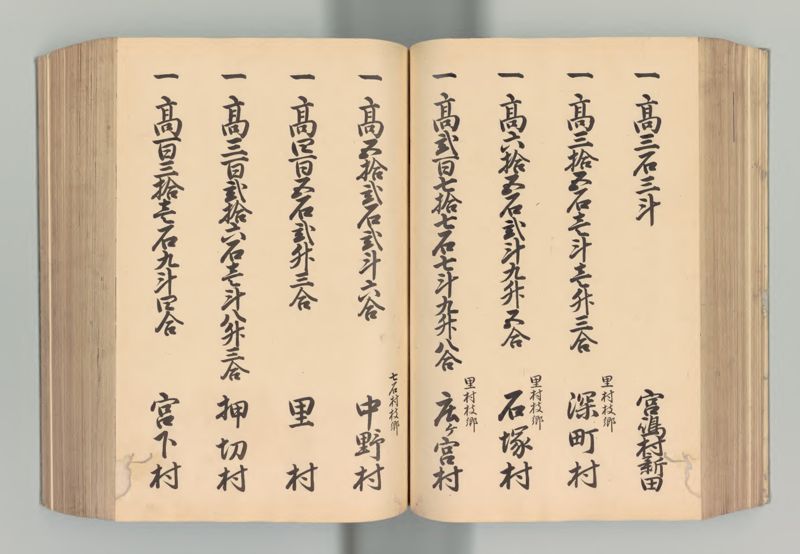 一 髙三石三斗 宮嶋村新田
一 髙三拾五石壱斗壱升三合 里村枝郷 深町村
一 髙六拾五石弐斗九升五合 里村枝郷 石塚村
一 髙弐百七拾七石七斗九升八合 里村枝郷 庄ケ宮村
一 髙五拾弐石弐斗六合 七石村枝郷 中野村
一 髙四百五石弐升三合 里村
一 髙三百弐拾六石壱斗八升三合 押切村
一 髙百三拾壱石九斗四合 宮下村